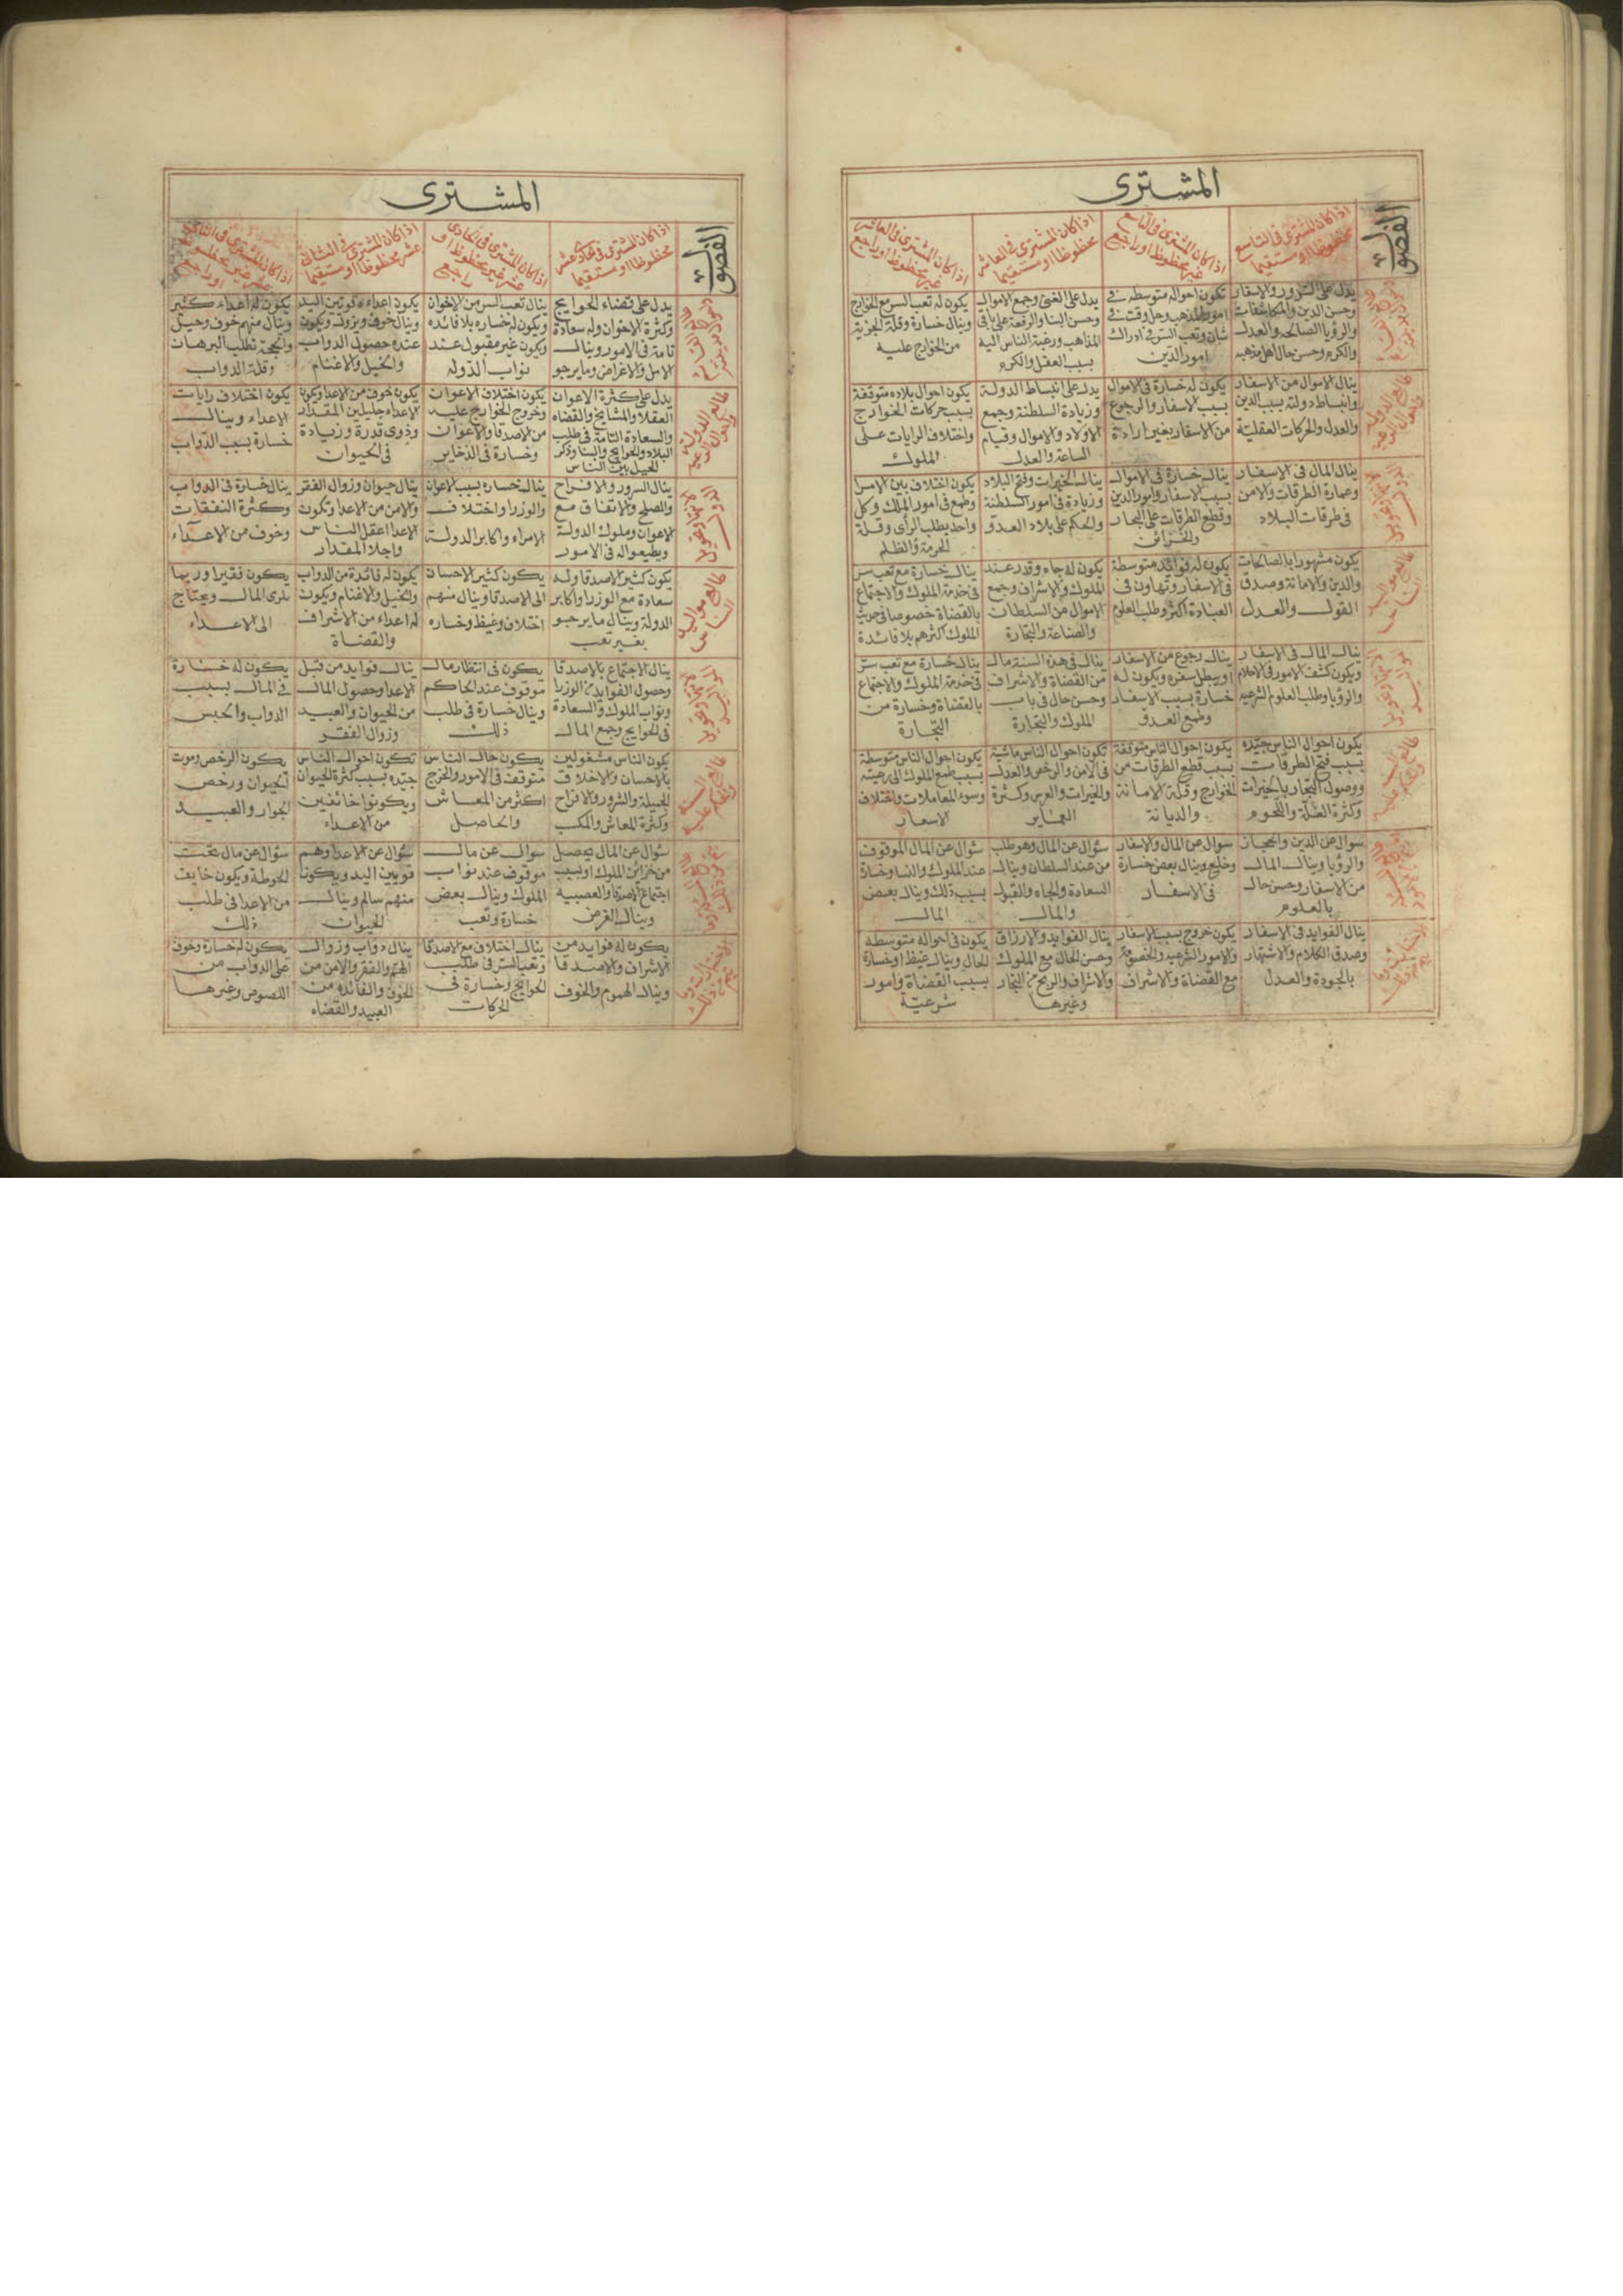 المشترى
الفصول
اذا كان المشترى فى التاسع
محظوظا او مستقيما
اذا كان المشترى فى التاسع
غير محظوظ او راجع
اذا كان المشترى فى العاشر
محظوظا او مستقيما
اذا كان المشترى فى العاشر
غير محظوظ او راجع
يدل على السرور والاسفار
وحسن الدين والمكاشفات
والرؤيا الصالحه والعدل
والكرم وحسن حال اهل مذهبه
تكون احواله متوسطه فى
امور المذهب
شان وتعب السر فى ادراك
امور الدين
يدل على الغنى وجمع الاموال
وحسن البنا والرفعة على باقى
المذاهب ورغبة الناس اليه
بسبب العقل والكرم
يكون له تعب السر مع الخوارج
وينال خسارة وقلة الحرية
من الخوارج عليه
ينال الاموال من الاسفار
وانبساط دولته بسبب الدين
والعدل والحركات العقلية
يكون له خسارة فى الاموال
بسبب الاسفار والرجوع
من الاسفار بغير ارادة
يدل على انبساط الدولة
وزيادة السلطنة وجمع
الاولاد والاموال وقيام
الساعة والعدل
يكون احوال بلاده متوقفة
بسبب حركات الخوارج
واختلاف الرايات على
الملوك
ينال المال فى الاسفار
وعمارة الطرقات والامن
فى طرقات البلاد
ينال خسارة فى الاموال
بسبب الاسفار وامور الدين
وقطع الطرقات على التجار
والخزائن
ينال الخيرات وفتح البلاد
وزيادة فى امور السلطنة
والحكم على بلاد العدو
يكون اختلاف بين الامرا
وطمع فى امور الملك وكل
واحد يطلب الرأى وقلة
الحرمة والظلم
يكون مشهورا بالصالحات
والدين والامانة وصدق
القول والعدل
يكون له فوائد متوسطة
فى الاسفار وتهاون فى
العبادة اكثر وطلب العلوم
يكون له جاه وقدر عند
الملوك والاشراف وجمع
الاموال من السلطان
والصناعة والتجارة
ينال خسارة مع تعب سر
فى خدمة الملوك والاجتماع
بالقضاة خصوصا فى حديث
الملوك اكثرهم بلا فائدة
ينال المال فى الاسفار
ويكون تكشف الامور فى الاحلام
والرؤيا وطلب العلوم الشرعيه
ينال رجوع من الاسفار
او يبطل سفره ويكون له
خسارة بسبب الاسفار
وطمع العدو
ينال فى هذه السنة مال
من القضاة والاشراف
وحسن حال فى باب
الملوك والتجارة
ينال خسارة مع تعب سر
فى خدمة الملوك والاجتماع
بالقضاة وخسارة من
التجارة
يكون احوال الناس جيده
بسبب فتح الطرقات
ووصول التجار بالخيرات
وكثرة الغلة واللحوم
يكون احوال الناس متوقفة
بسبب قطع الطرقات من
الخوارج وقلة الامانة
والديانة
تكون احوال الناس ماشية
فى الامن والرخص والعدل
والخيرات والعرس وكثرة
العماير
يكون احوال الناس متوسطة
بسبب طمع الملوك الى رعيته
وسوء المعاملات واختلاف
الاسعار
سوال عن الدين والحجات
والرؤيا وينال المال
من الاسفار وحسن حال
بالعلوم
سوال عن المال والاسفار
وخليع وينال بعض خسارة
فى الاسفار
سئوال عن المال وهو طلب
من عند السلطان وينال
السعادة والجاه والقبول
والمال
سئوال عن المال الموقوف
عند الملوك والنسا وخسارة
بسبب ذلك وينال بعض
المال
ينال الفوايد فى الاسفار
وصدق الكلام والاشتهار
بالجودة والعدل
يكون خروج بسبب الاسفار
والامور الشرعيه والخصومة
مع القضاة والاشراف
ينال الفوايد والارزاق
وحسن الحال مع الملوك
والاشراف والربح من التجار
وغيرها
يكون فى احواله متوسطه
الحال وينال غيظ او خسارة
بسبب القضاة وامور
شرعية
المشترى
الفصول
اذا كان المشترى فى حادى عشر
محظوظا او مستقيما
اذا كان المشترى فى الحادى
عشر غير محظوظ او
راجع
اذا كان المشترى فى الثانى
عشر محظوظا او مستقيما
اذا كان المشترى فى الثانى
عشر غير محظوظ
او راجع
يدل على قضاء الحوايج
وكثرة الاخوان وله سعادة
تامة فى الامور وينال
الامل والاغراض وما يرجو
ينال تعب السر من الاخوان
ويكون له خساره بلا فائده
ويكون غير مقبول عند
نواب الدوله
يكون اعداءه قويين اليد
وينال خوف ويزول ويكون
عنده حصول الدواب
والخيل والاغنام
يكون له اعداء كثير
وينال منهم خوف وحيل
والحجة تطلب البرهان
وقلة الدواب
يدل على كثرة الاعوان
العقلا والمشايخ والقضاه
والسعادة التامة فى طلب
البلاد والحوايج والبنا وذكر
الجيل بين الناس
يكون اختلاف الاعوان
وخروج الخوارج عليه
من الاصدقا والاعوان
وخسارة فى الذخاير
يكون خوف من الاعدا ويكون
الاعداء جليلين المقدار
وذوى قدرة وزيادة
فى الحيوان
يكون اختلاف رايات
الاعداء وينال
خسارة بسبب الدواب
ينال السرور والافراح
والصلح والاتفاق مع
الاعوان وملوك الدولة
ويطيعوا له فى الامور
ينال خساره بسبب الاعوان
والوزرا واختلاف
الامراء واكابر الدولة
ينال حيوان وزوال الفقر
والامن من الاعدا وتكون
الاعدا اعقل الناس
واجلا المقدار
ينال خسارة فى الدواب
وكثرة النفقات
وخوف من الاعداء
يكون كثير الاصدقا وله
سعادة مع الوزرا واكابر
الدولة وينال ما يرجو
بغير تعب
يكون كثير الاحسان
الى الاصدقا وينال منهم
اختلاف وغيظ وخساره
يكون له فائدة من الدواب
والخيل والاغنام ويكون
له اعداء من الاشراف
والقضاة
يكون فقيرا وربما
يرى المال ويحتاج
الى الاعداء
ينال الاجتماع بالاصدقا
وحصول الفوايد من الوزرا
ونواب الملوك والسعادة
فى الحوايج وجمع المال
يكون فى انتظار مال
موقوف عند الحاكم
وينال خسارة فى طلب
ذلك
ينال فوايد من قبل
الاعدا وحصول المال
من الحيوان والعبيد
وزوال الفقر
يكون له خسارة
فى المال بسبب
الدواب والحبس
يكون الناس مشغولين
بالاحسان والاخلاق
الجميلة والسرور والافراح
وكثرة المعاش والمكسب
يكون حال الناس
متوقف فى الامور والخرج
اكثر من المعاش
والحاصل
تكون احوال الناس
جيده بسبب كثرة الحيوان
ويكونوا خائفين
من الاعداء
يكون الرخص وموت
الحيوان ورخص
الجوار والعبيد
سئوال عن المال يحصل
من خزائن الملوك او بسبب
اجتماع الاصدقا والعصبيه
وينال الغرض
سوال عن مال
موقوف عند نواب
الملوك وينال بعض
خسارة وتعب
سئوال عن الاعدا وهم
قويين اليد ويكونا
منهم سالم وينال
الحيوان
سئوال عن مال تحت
الحوطة ويكون خايف
من الاعدا فى طلب
ذلك
يكون له فوايد من
الاشراف والاصدقا
وينال الهموم والخوف
ينال اختلاف مع الاصدقا
وتعب السر فى طلب
الحوايج وخسارة فى
الحركات
ينال دواب وزوال
الهم والفقر والامن من
الخوف والفائده من
العبيد والقضاه
يكون له خسارة وخوف
على الدواب من
اللصوص وغيرها